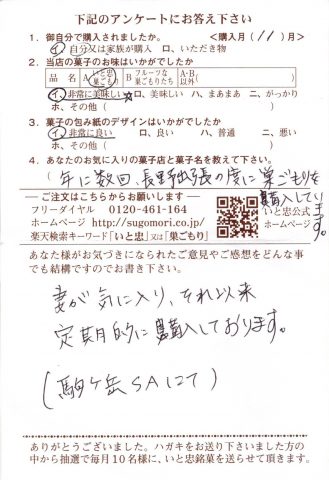 下記のアンケートにお答え下さい
1. 御自分で購入されましたか。 <購入月(11)月>
イ. 自分又は家族が購入 ロ、いただき物
2. 当店の菓子のお味はいかがでしたか
品名 A いと忠巣ごもり B フルーツな巣ごもりたち A・B以外( )
イ、非常に美味しい☆ ロ、美味しい ハ、まあまあ ニ、がっかり
ホ、その他( )
3. 菓子の包み紙のデザインはいかがでしたか
イ、非常に良い ロ、良い ハ、普通 ニ、悪い
ホ、その他( )
4. あなたのお気に入りの菓子店と菓子名を教えて下さい。
年に数回、長野出張の度に巣ごもりを
購入しています。
―ご注文はこちらからお願い―
フリーダイヤル 0120-461-164
ホームページ http://sugomori.co.jp/
楽天検索キーワード「いと忠」又は「巣ごもり」
いと忠公式
ホームページ
あなた様がお気づきになられたご意見やご感想をどんな事
でも結構ですのでお書き下さい。
妻が気に入り、それ以来
定期的に購入しております。
(駒ヶ岳SAにて)
ありがとうございました。ハガキをお送り下さいました方の
中から抽選で毎月10名様に、いと忠銘菓を送らせて頂きます。